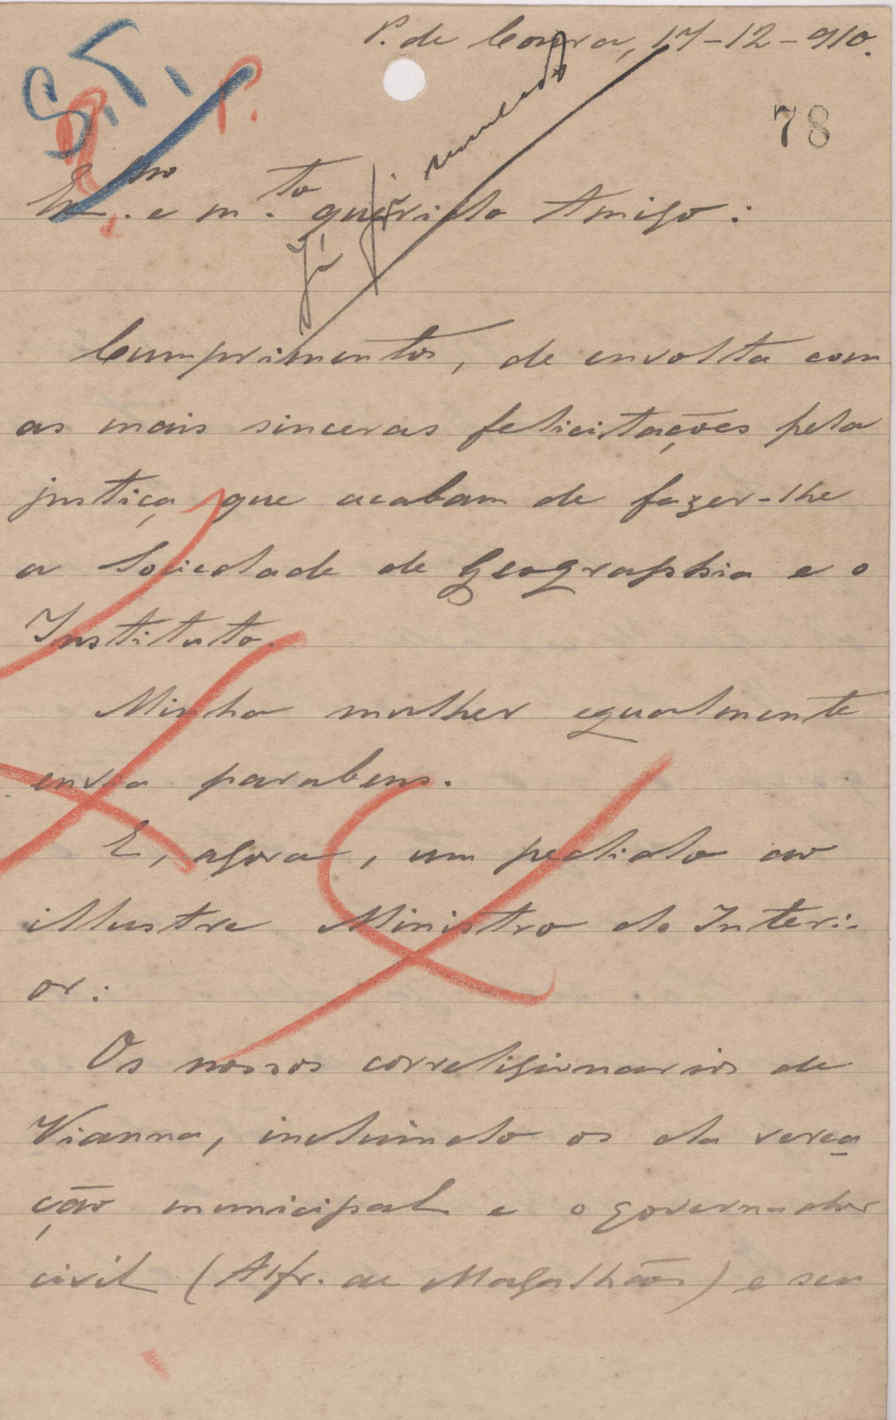 P. de Coura, 17-12-910.
S. T.
P.
78
Já foi nomeado
Ex.mo e m.to querido Amigo:
Cumprimentos, de envolta com
as mais sinceras felicitações pela
justiça que acabam de fazer-lhe
a Sociedade de Geographia e o
Instituto.
Minha mulher egualmente
envia parabens.
E, agora, um pedido ao
illustre Ministro do Interi-
or:
Os nossos correligionarios de
Vianna, incluindo os da verea
ção municipal e o governador
civil (Alfr. de Magalhães) e seu